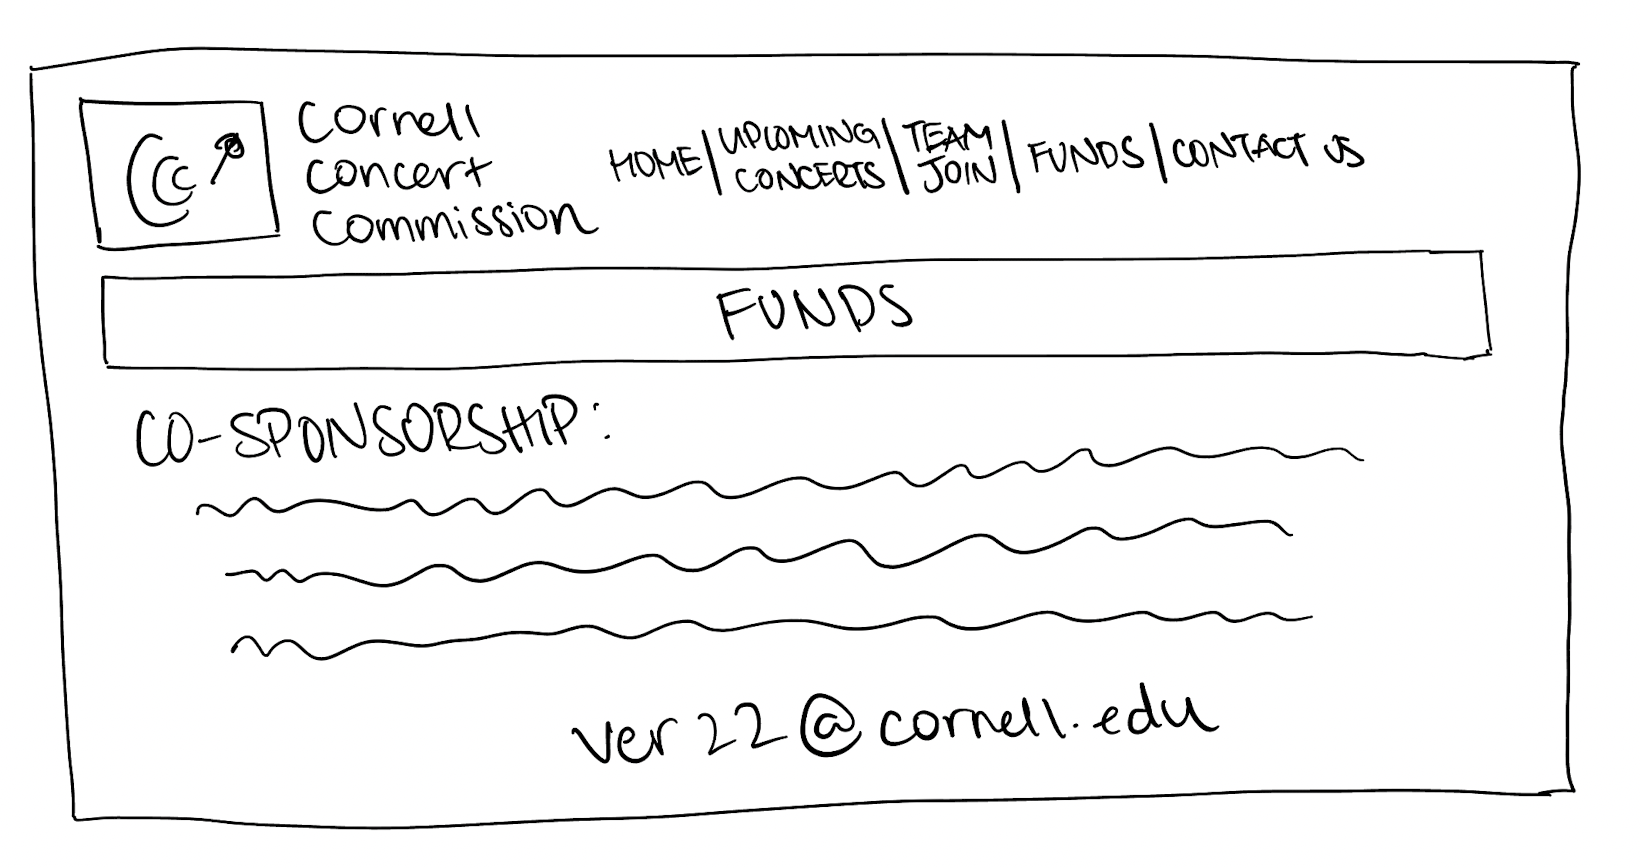 CCC
Cornell
Concert
Commission
HOME | UPCOMING CONCERTS | TEAM JOIN | FUNDS | CONTACT US
FUNDS
CO-SPONSORSHIP:
ver22@cornell.edu